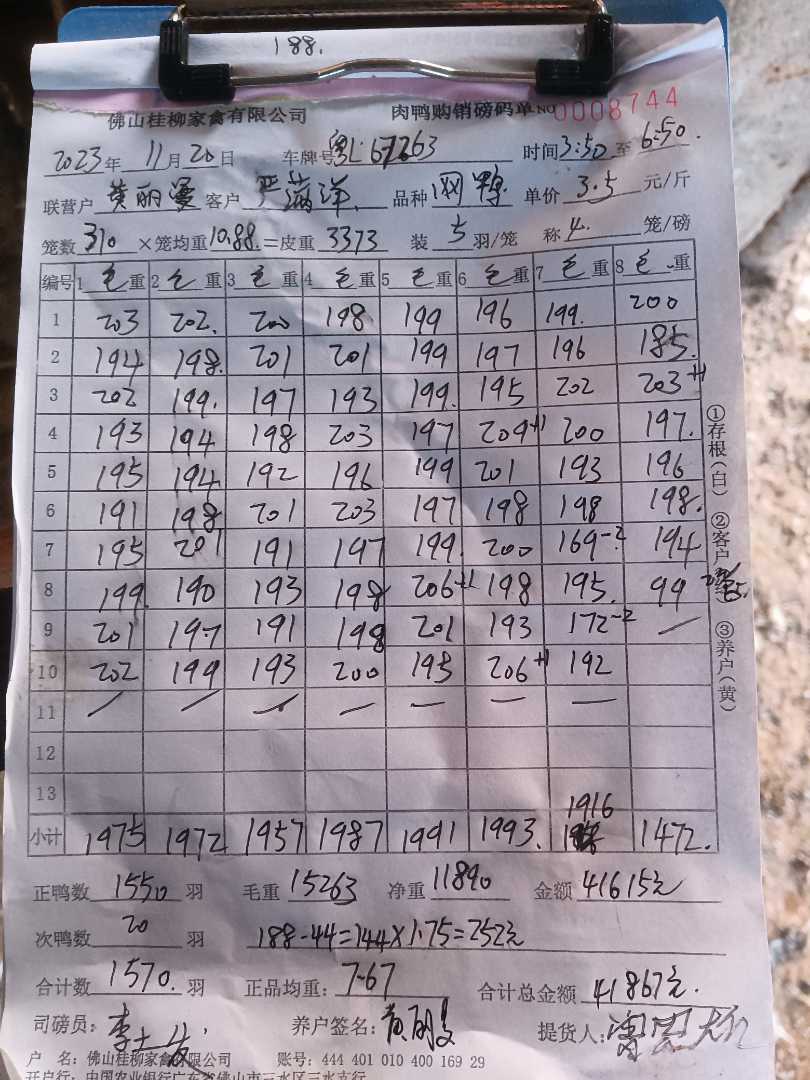 188.
佛山桂柳家禽有限公司 肉鸭购销磅码单 NO 0008744
2023年 11月20日 车牌号 粤L·67263 时间3:50至6:50.
联营户 黄丽 客户 严满洋 品种 网鸭 单价 3.5 元/斤
笼数 310 ×笼均重 10.88 =皮重 3373 装 5 羽/笼 称 4. 笼/磅
编号 1毛重 2毛重 3毛重 4毛重 5毛重 6毛重 7毛重 8毛重
1 203 202. 200 198. 199 196 199. 200
2 194 198. 201 201 199 197 196 185.
3 202 199. 197 193 199. 195 202 203+1
4 193 194 198 203 197 209+1 200 197.
5 195 194 192 196 199 201 193 196
6 191 198 201 203 197 198 198 198.
7 195 201 191 197 199. 200 169-2 194
8 199. 190 193 198 206+1 198 195. 99
9 201 197 191 198 201 193 172-2 —
10 202 199 193 200 195 206+1 192
11 — — — — — — —
12
13
1916
小计 1975 1972 1957 1987 1991 1993. 1472.
正鸭数 1550 羽 毛重 15263 净重 11890 金额 41615元
次鸭数 20 羽 188-44=144×1.75=252元
合计数 1570. 羽 正品均重: 7.67 合计总金额 41867元.
司磅员: 李 养户签名: 黄丽 提货人:
户 名: 佛山桂柳家禽有限公司 账号: 444 401 010 400 169 29
开户行: 中国农业银行广东省佛山市三水区三水支行
①存根(白) ②客户 ③养户(黄)